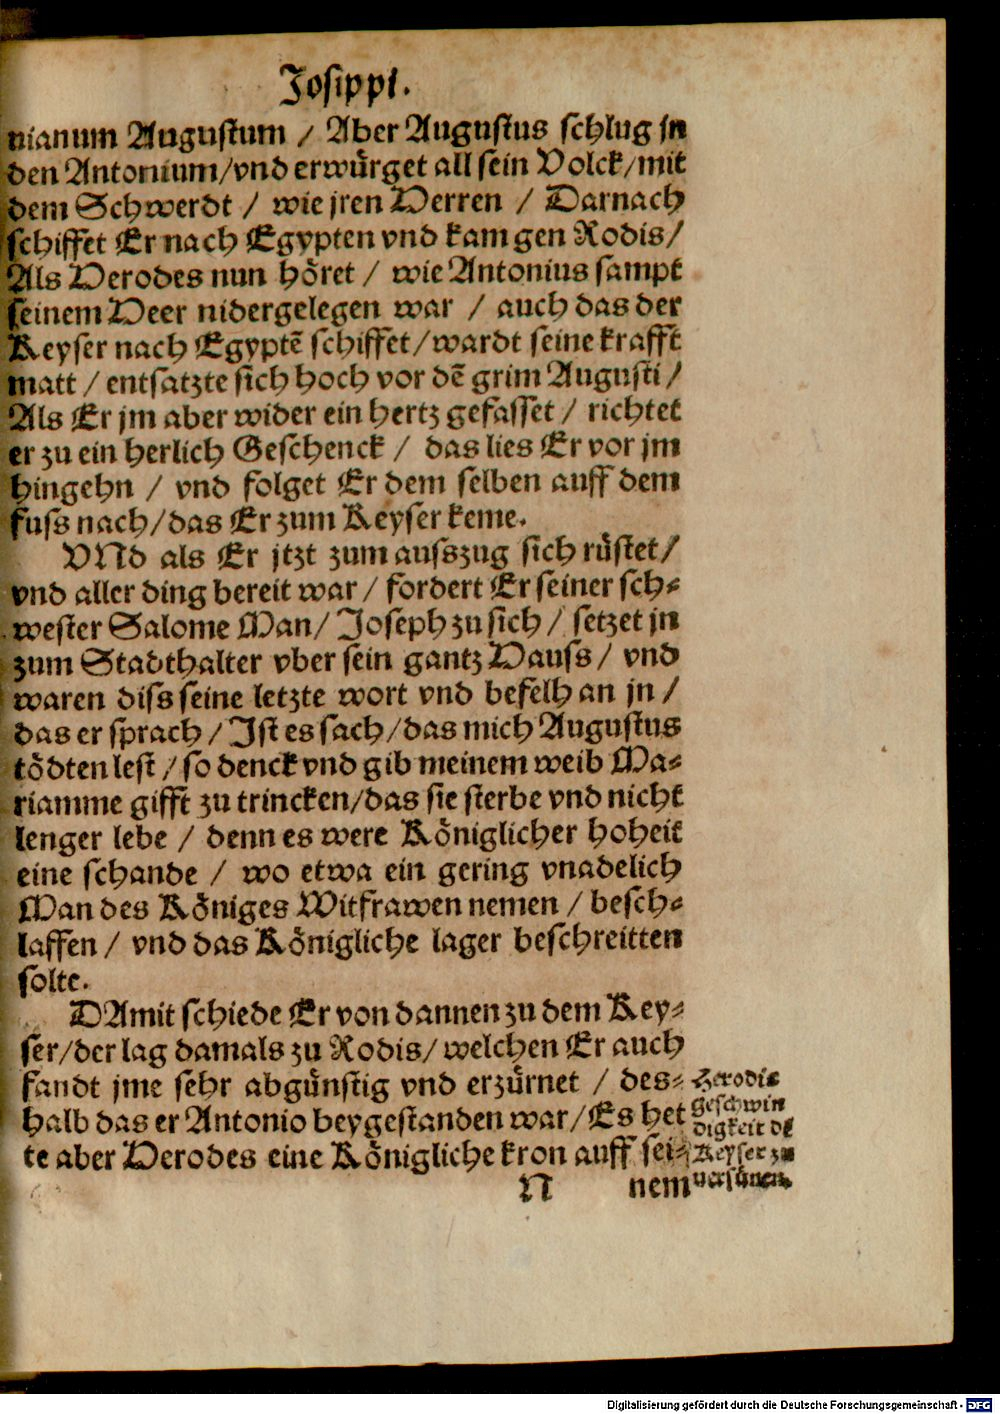 Josippi.
nianum Augustum / Aber Augustus schlug jn
den Antonium/vnd erwürget all sein Volck/mit
dem Schwerdt / wie jren Herren / Darnach
schiffet Er nach Egypten vnd kam gen Rodis/
Als Herodes nun höret / wie Antonius sampt
seinem Heer nidergelegen war / auch das der
Keyser nach Egyptē schiffet/wardt seine krafft
matt / entsatzte sich hoch vor dē grim Augusti/
Als Er jm aber wider ein hertz gefasset / richtet
er zu ein herlich Geschenck / das lies Er vor jm
hingehn / vnd folget Er dem selben auff dem
fuss nach/das Er zum Keyser keme.
VNd als Er jtzt zum ausszug sich rüstet/
vnd aller ding bereit war / fordert Er seiner sch-
wester Salome Man/ Joseph zu sich / setzet jn
zum Stadthalter vber sein gantz Hauss / vnd
waren diss seine letzte wort vnd befelh an jn /
das er sprach / Ist es sach/das mich Augustus
tödten lest / so denck vnd gib meinem weib Ma-
riamme gifft zu trincken/das sie sterbe vnd nicht
lenger lebe / denn es were Königlicher hoheit
eine schande / wo etwa ein gering vnadelich
Man des Königes Witfrawen nemen / besch-
laffen / vnd das Königliche lager beschreitten
solte.
DAmit schiede Er von dannen zu dem Key-
ser/der lag damals zu Rodis/welchen Er auch
fandt jme sehr abgünstig vnd erzürnet / des-
halb das er Antonio beygestanden war/Es het
te aber Herodes eine Königliche kron auff sei-
N nem
Herodis
geschwin
digkeit dē
Keyser zu
versünen.
Digitalisierung gefördert durch die Deutsche Forschungsgemeinschaft - DFG